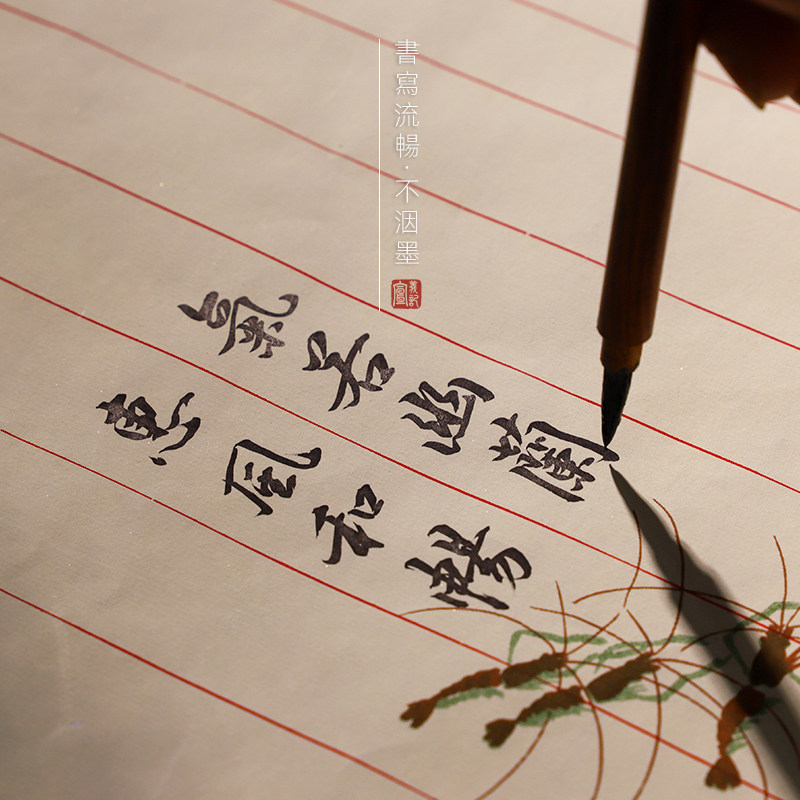 書寫流暢·不洇墨
義記宣
氣若幽蘭
惠風和暢